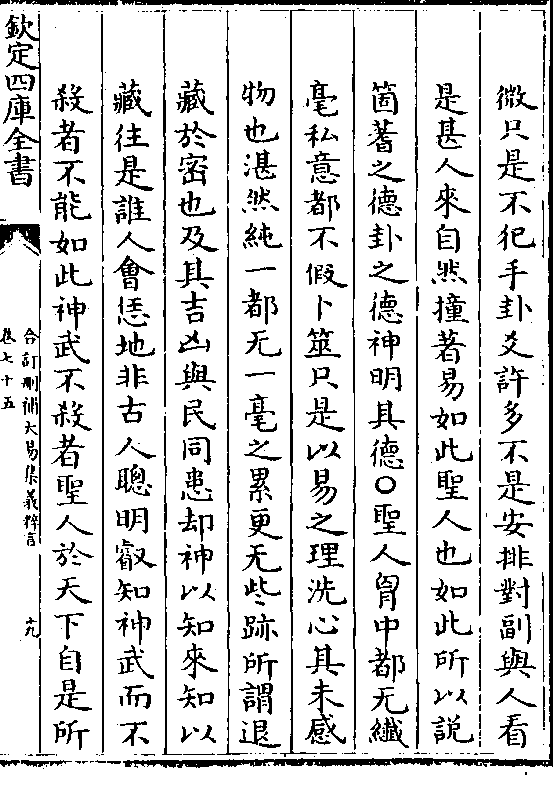 微只是不犯手卦爻許多不是安排對副與人看
是甚人來自然撞著易如此聖人也如此所以說
箇蓍之德卦之德神明其德○聖人胷中都无纖
毫私意都不假卜筮只是以易之理洗心其未感
物也湛然純一都无一毫之累更无些跡所謂退
藏於密也及其吉凶與民同患却神以知來知以
藏往是誰人會恁地非古人聰明叡知神武而不
殺者不能如此神武不殺者聖人於天下自是所
欽定四庫全書
合訂刪補大易集義粹言
卷七十五
十九